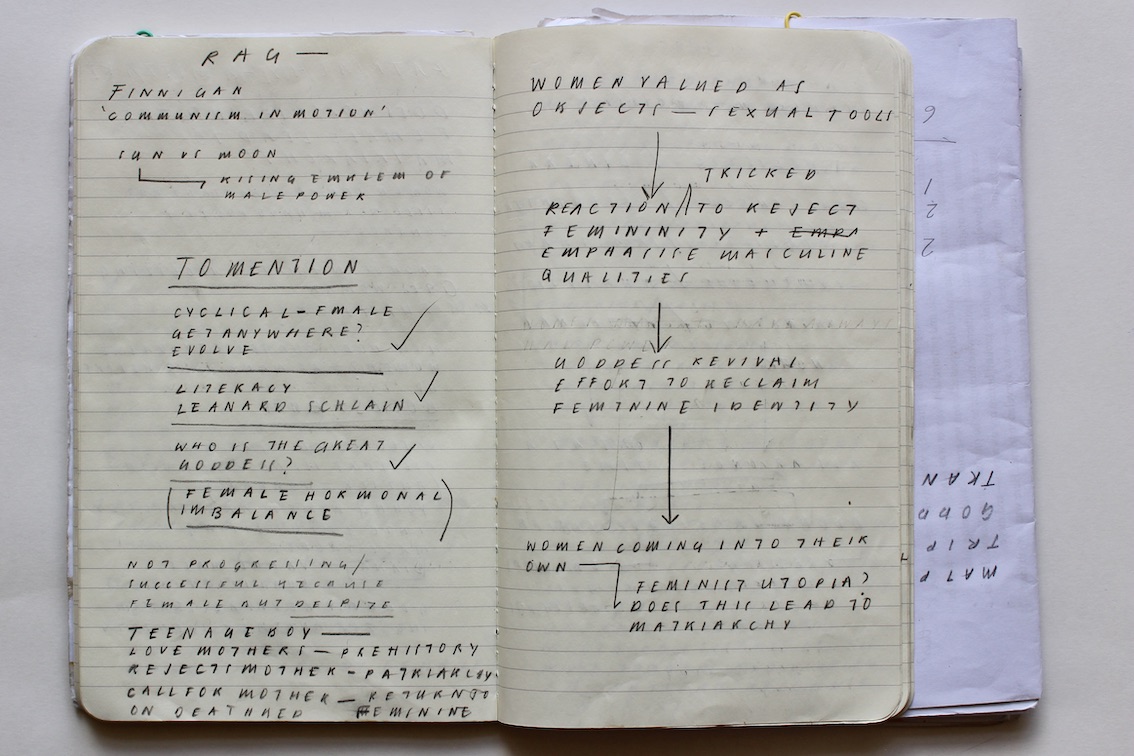 RAG —
FINNIGAN
'COMMUNISM IN MOTION'
SUN VS MOON
RISING EMBLEM OF
MALE POWER
TO MENTION
CYCLICAL - FMALE
GET ANYWHERE?
EVOLVE
LITERACY
LEANARD SCHLAIN
WHO IS THE GREAT
GODDESS?
(FEMALE HORMONAL
IMBALANCE)
NOT PROGRESSING/
SUCCESSFUL BECAUSE
FEMALE BUT DESPITE
TEENAGE BOY —
LOVE MOTHERS — PREHISTORY
REJECTS MOTHER - PATRIARCHY
CALL FOR MOTHER — RETURN TO
ON DEATHBED FEMININE
WOMEN VALUED AS
OBJECTS — SEXUAL TOOLS
TRICKED
REACTION / TO REJECT
FEMININITY + EMPA
EMPHASISE MASCULINE
QUALITIES
GODDESS REVIVAL
EFFORT TO RECLAIM
FEMININE IDENTITY
WOMEN COMING INTO THEIR
OWN
FEMINIST UTOPIA?
DOES THIS LEAD TO
MATRIARCHY
6
1
2
2
TRAN
GODD
TRIP
MATR